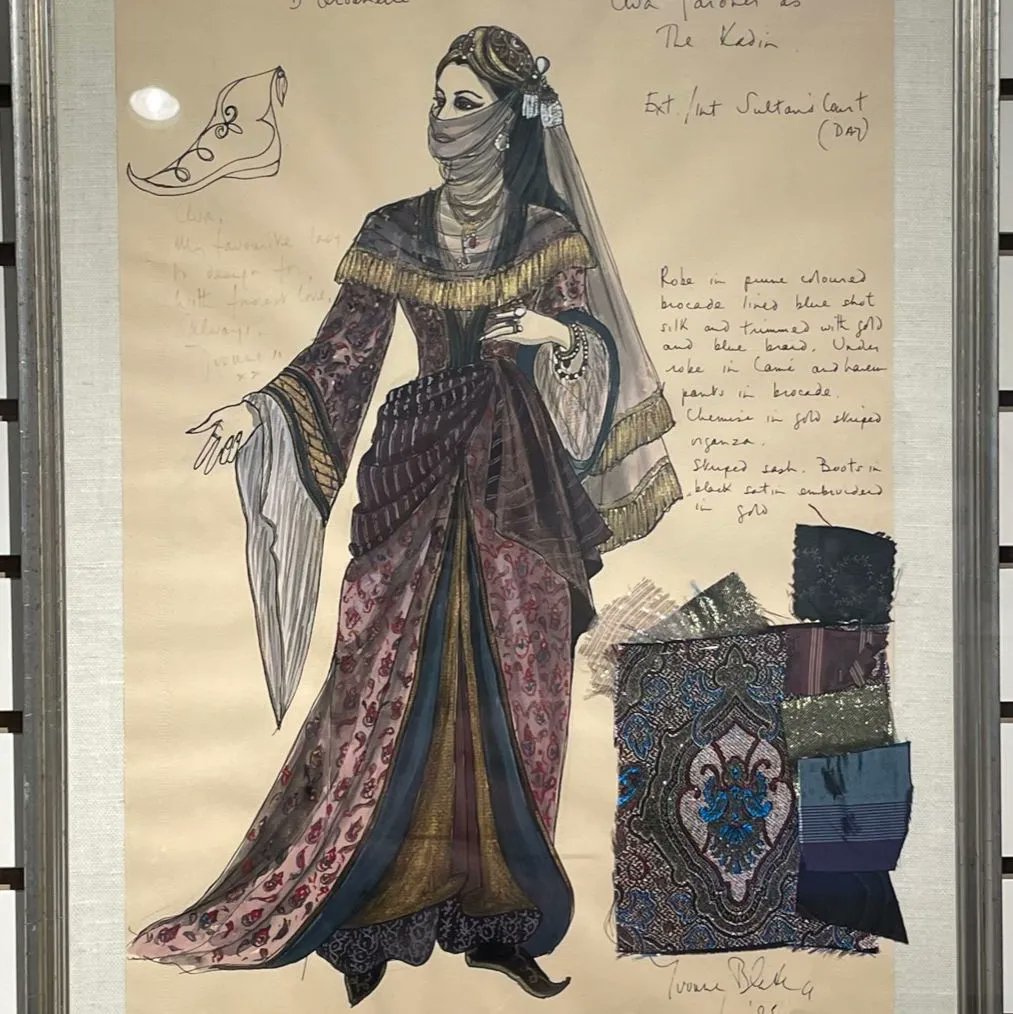 Ava Gardner as
The Kadin
Ext./Int Sultan's Court
(DAY)
Ava,
My favourite lady
to design for,
with fondest love,
Always,
Yvonne
xx
Robe in prune coloured
brocade lined blue shot
silk and trimmed with gold
and blue braid. Under
robe in lamé and harem
pants in brocade.
Chemise in gold striped
organza.
Striped sash. Boots in
black satin embroidered
in gold
Yvonne Blake